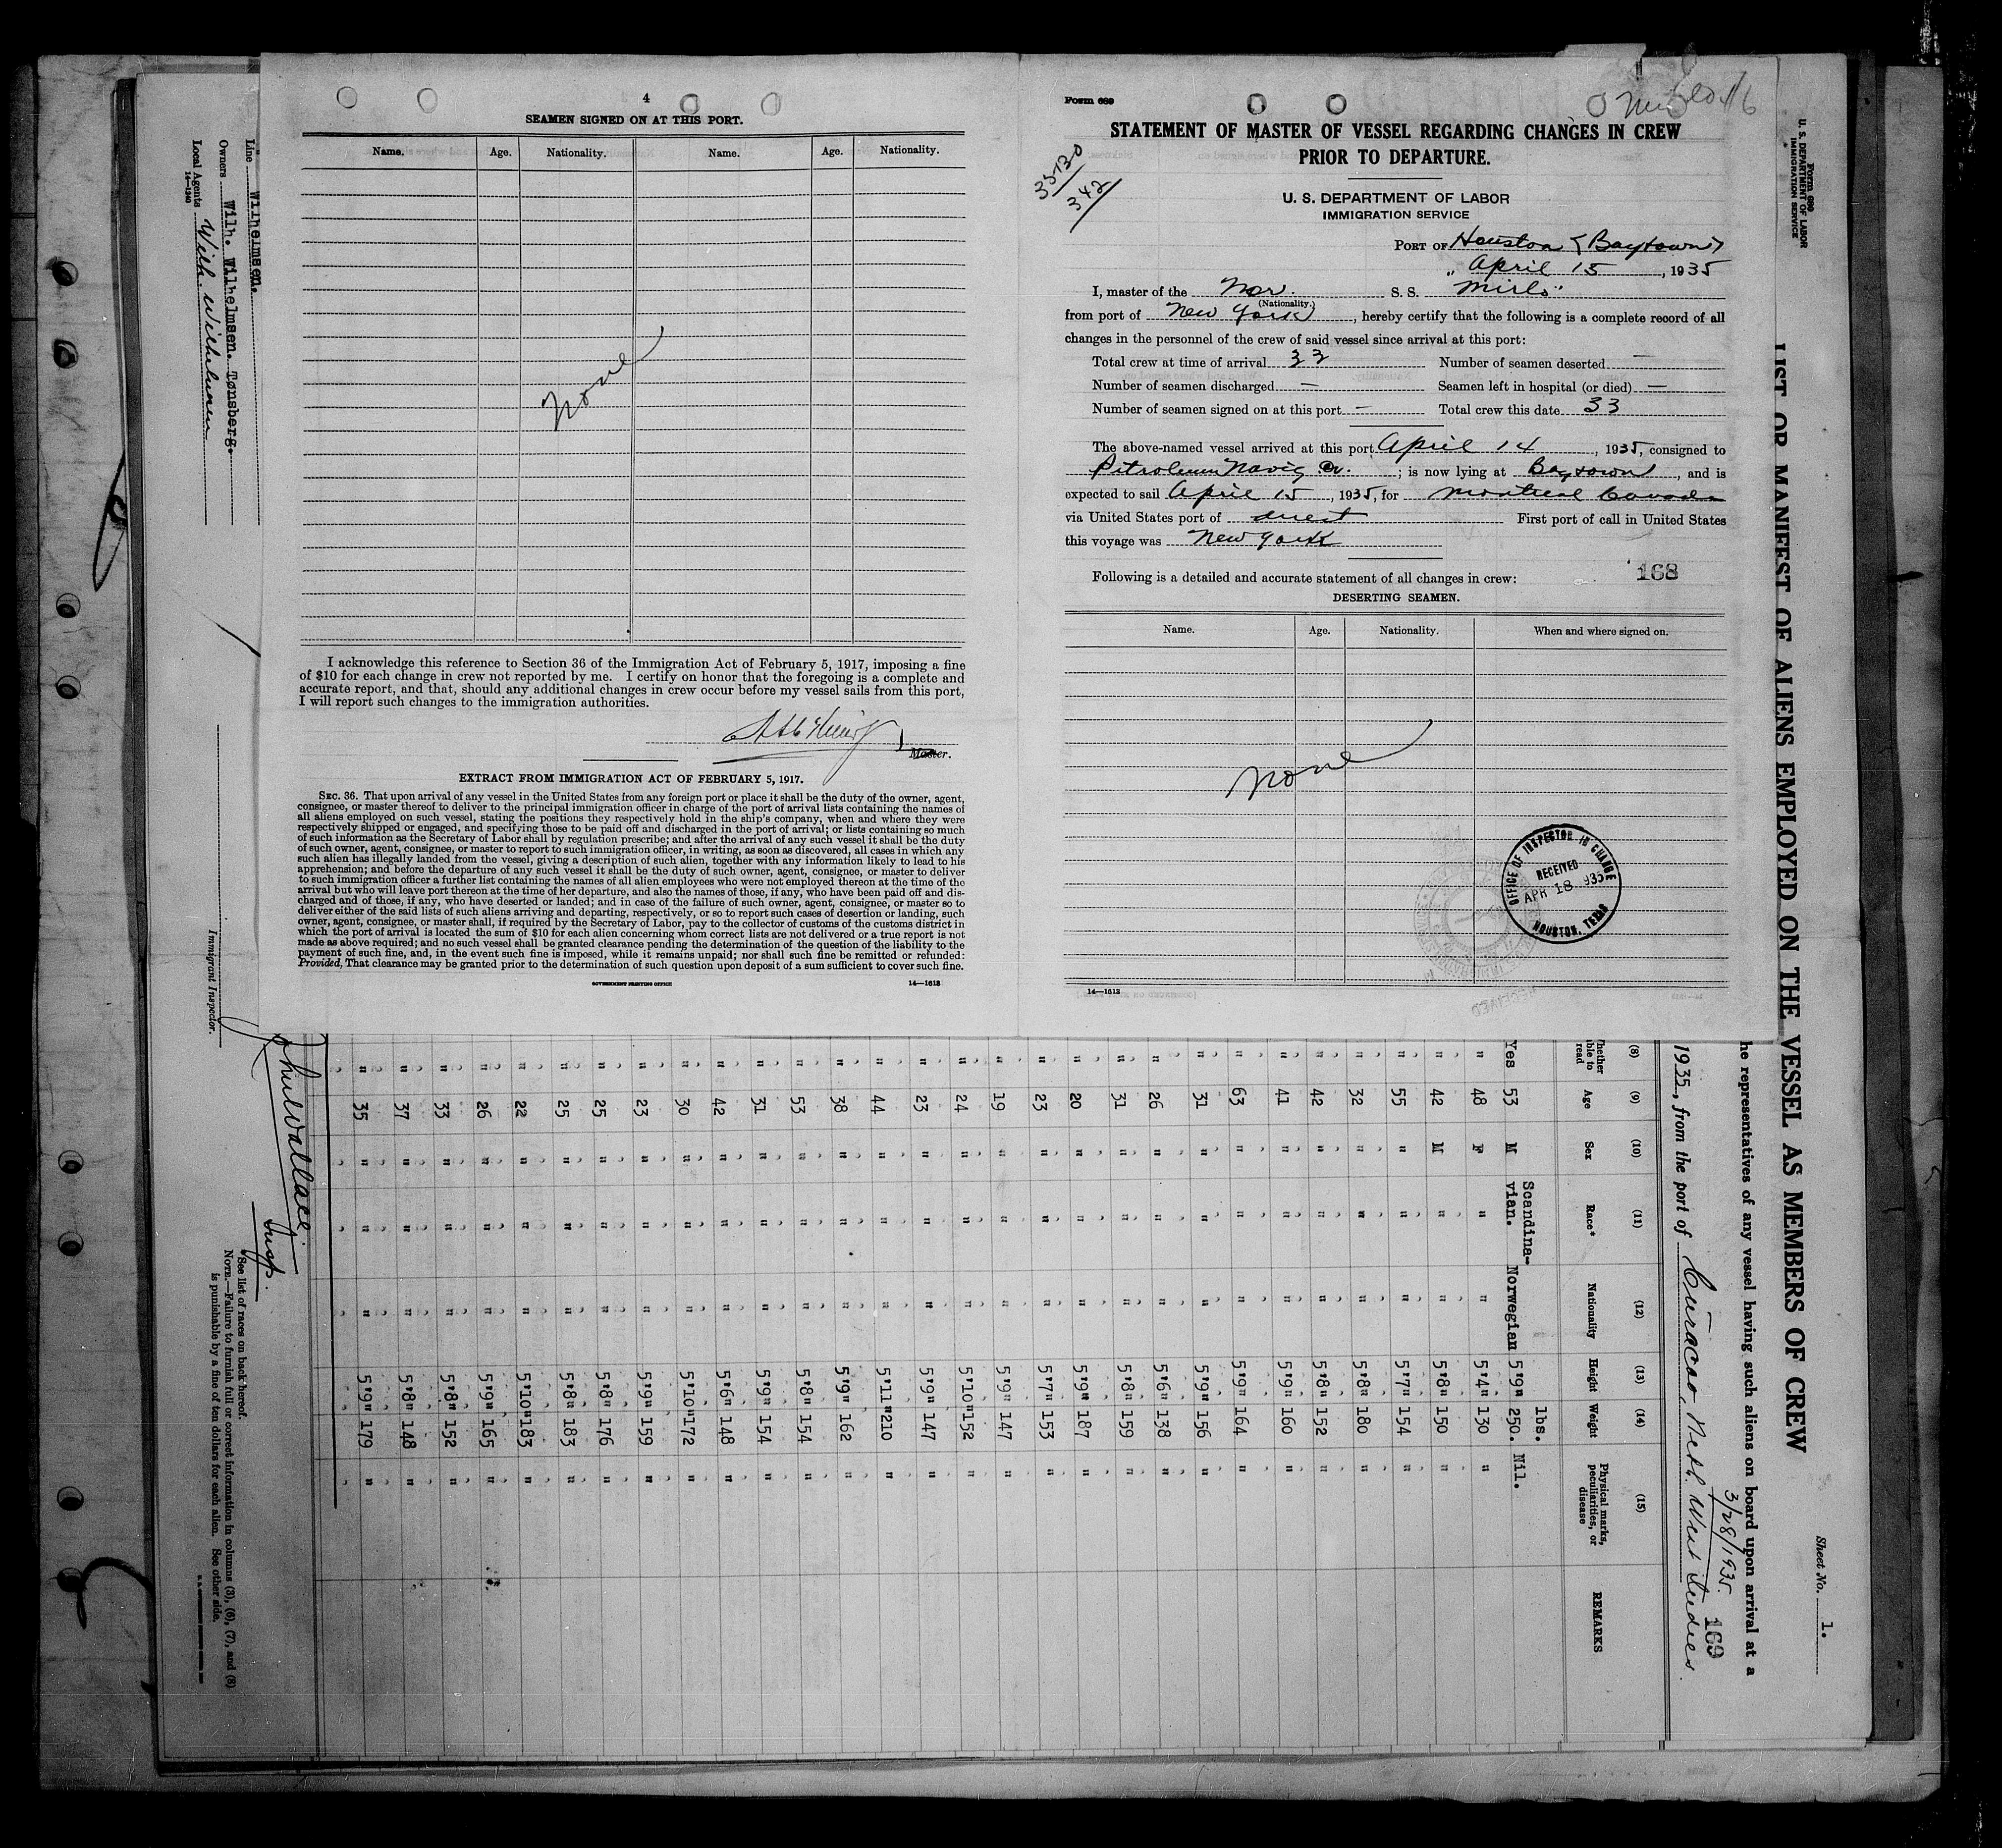 4
SEAMEN SIGNED ON AT THIS PORT.
Name. Age. Nationality. Name. Age. Nationality.
None
I acknowledge this reference to Section 36 of the Immigration Act of February 5, 1917, imposing a fine
of $10 for each change in crew not reported by me. I certify on honor that the foregoing is a complete and
accurate report, and that, should any additional changes in crew occur before my vessel sails from this port,
I will report such changes to the immigration authorities.
Master.
EXTRACT FROM IMMIGRATION ACT OF FEBRUARY 5, 1917.
SEC. 36. That upon arrival of any vessel in the United States from any foreign port or place it shall be the duty of the owner, agent,
consignee, or master thereof to deliver to the principal immigration officer in charge of the port of arrival lists containing the names of
all aliens employed on such vessel, stating the positions they respectively hold in the ship's company, when and where they were
respectively shipped or engaged, and specifying those to be paid off and discharged in the port of arrival; or lists containing so much
of such information as the Secretary of Labor shall by regulation prescribe; and after the arrival of any such vessel it shall be the duty
of such owner, agent, consignee, or master to report to such immigration officer, in writing, as soon as discovered, all cases in which any
such alien has illegally landed from the vessel, giving a description of such alien, together with any information likely to lead to his
apprehension; and before the departure of any such vessel it shall be the duty of such owner, agent, consignee, or master to deliver
to such immigration officer a further list containing the names of all alien employees who were not employed thereon at the time of the
arrival but who will leave port thereon at the time of her departure, and also the names of those, if any, who have been paid off and dis-
charged and of those, if any, who have deserted or landed; and in case of the failure of such owner, agent, consignee, or master so to
deliver either of the said lists of such aliens arriving and departing, respectively, or so to report such cases of desertion or landing, such
owner, agent, consignee, or master shall, if required by the Secretary of Labor, pay to the collector of customs of the customs district in
which the port of arrival is located the sum of $10 for each alien concerning whom correct lists are not delivered or a true report is not
made as above required; and no such vessel shall be granted clearance pending the determination of the question of the liability to the
payment of such fine, and, in the event such fine is imposed, while it remains unpaid; nor shall such fine be remitted or refunded:
Provided, That clearance may be granted prior to the determination of such question upon deposit of a sum sufficient to cover such fine.
GOVERNMENT PRINTING OFFICE 14—1613
Form 689
STATEMENT OF MASTER OF VESSEL REGARDING CHANGES IN CREW
PRIOR TO DEPARTURE.
35130/342
U. S. DEPARTMENT OF LABOR
IMMIGRATION SERVICE
PORT OF Houston (Baytown)
" April 15, 1935
I, master of the Nor. S. S. Mirlo
(Nationality.)
from port of New York, hereby certify that the following is a complete record of all
changes in the personnel of the crew of said vessel since arrival at this port:
Total crew at time of arrival 33 Number of seamen deserted —
Number of seamen discharged — Seamen left in hospital (or died) —
Number of seamen signed on at this port — Total crew this date 33
The above-named vessel arrived at this port April 14, 1935, consigned to
Petroleum Navig Co.; is now lying at Baytown, and is
expected to sail April 15, 1935, for Montreal Canada
via United States port of direct First port of call in United States
this voyage was New York
Following is a detailed and accurate statement of all changes in crew: 168
DESERTING SEAMEN.
Name. Age. Nationality. When and where signed on.
None
OFFICE OF INSPECTOR IN CHARGE
RECEIVED
APR 18 1935
HOUSTON, TEXAS
14—1613
Form 689
U. S. DEPARTMENT OF LABOR
IMMIGRATION SERVICE
Sheet No. 1.
LIST OR MANIFEST OF ALIENS EMPLOYED ON THE VESSEL AS MEMBERS OF CREW
he representatives of any vessel having such aliens on board upon arrival at a
3/28/1935. 169
1935, from the port of Curacao, Neth. West Indies.
(8) (9) (10) (11) (12) (13) (14) (15)
Whether able to read Age Sex Race* Nationality Height Weight Physical marks, peculiarities, or disease REMARKS
lbs.
Yes 53 M Scandina-vian. Norwegian 5'9" 250. Nil.
" 48 F " " 5'4" 130 "
" 42 M " " 5'8" 150 "
" 55 " " " 5'7" 154 "
" 32 " " " 5'8" 180 "
" 42 " " " 5'8" 152 "
" 41 " " " 5'9" 160 "
" 63 " " " 5'9" 164 "
" 31 " " " 5'9" 156 "
" 26 " " " 5'6" 138 "
" 31 " " " 5'8" 159 "
" 20 " " " 5'9" 187 "
" 23 " " " 5'7" 153 "
" 19 " " " 5'9" 147 "
" 24 " " " 5'10" 152 "
" 23 " " " 5'9" 147 "
" 44 " " " 5'11" 210 "
" 38 " " " 5'9" 162 "
" 53 " " " 5'8" 154 "
" 31 " " " 5'9" 154 "
" 42 " " " 5'6" 148 "
" 30 " " " 5'10" 172 "
" 23 " " " 5'9" 159 "
" 25 " " " 5'8" 176 "
" 25 " " " 5'8" 183 "
" 22 " " " 5'10" 183 "
" 26 " " " 5'9" 165 "
" 33 " " " 5'8" 152 "
" 37 " " " 5'8" 148 "
" 35 " " " 5'9" 179 "
Line Wilhelmsen.
Owners Wilh. Wilhelmsen. Tønsberg.
Local Agents Wilh. Wilhelmsen
14—1240
John Wallace, Insp.
Immigrant Inspector.
*See list of races on back hereof.
NOTE.—Failure to furnish full or correct information in columns (3), (6), (7), and (8)
is punishable by a fine of ten dollars for each alien. See other side.